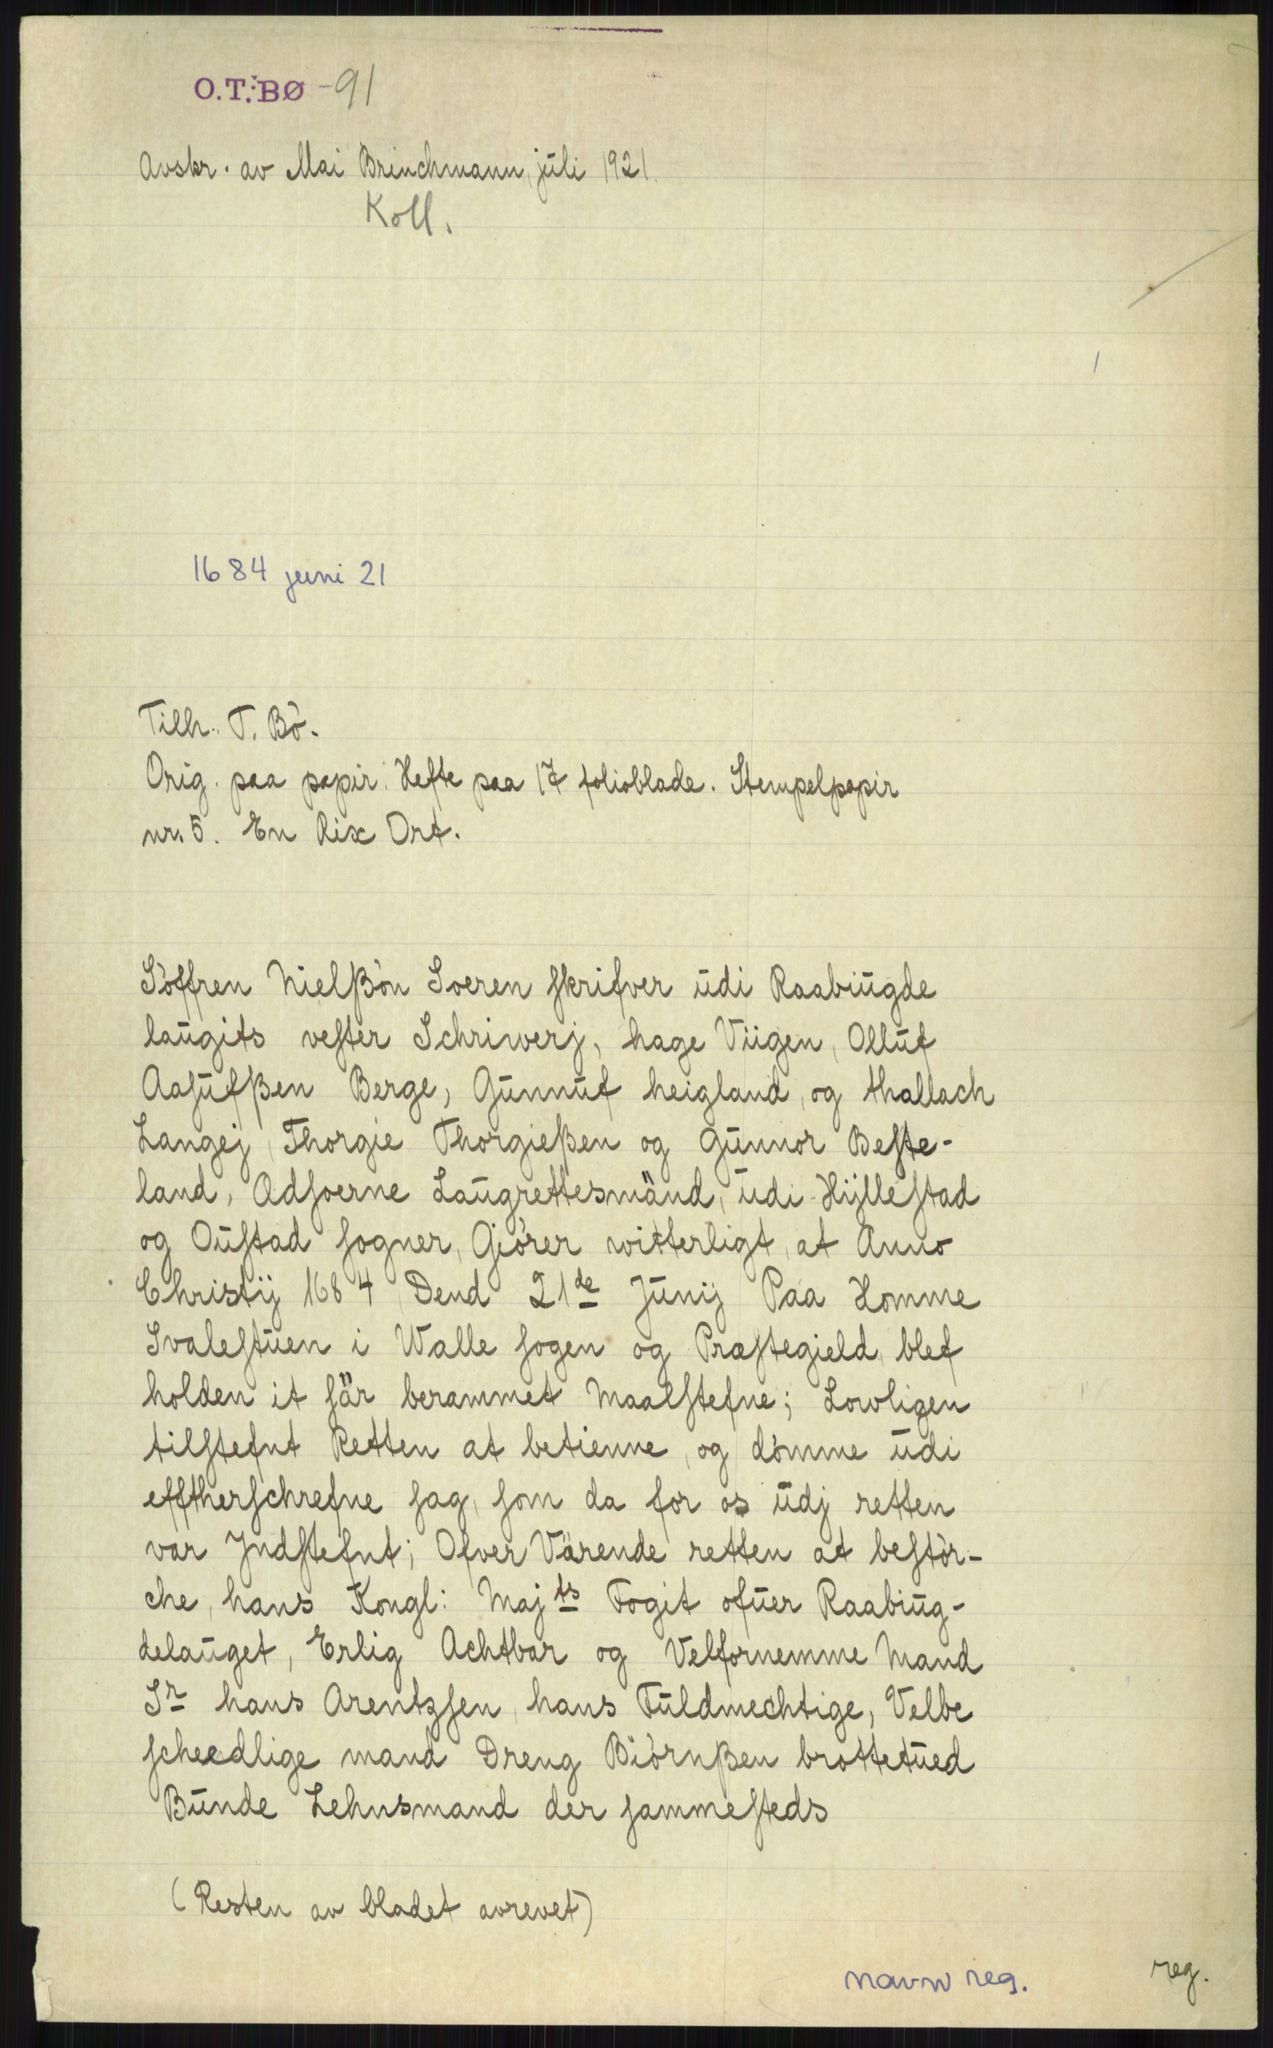 O.T. BØ - 91
Avskr. av Mai Brinchmann, juli 1921.
Koll.
1
1684 juni 21
Tilh. T. Bö.
Orig. paa papir. Hefte paa 17 folioblade. Stempelpapir
nr. 5. En Rix Ort.
Söffren Nielßön Soeren skrifver udi Raabiugde
laugits vester Schriwerj, hage Viigen, Olluf
Aasufßen Berge, Gunnuf heigland, og thallach
Langej, Thorgie Thorgießen og Gunnor Beste-
land, Adsoerne Laugrettesmänd, udi Hÿllestad
og Oustad sogner, Giörer witterligt, at Anno
Christij 1684 Dend 21de Junij Paa Homme
Svalestuen i Walle sogen og Præstegield, blef
holden it sär berammet Maalstefne; Lowligen
tilstefnt Retten at betienne, og dömme udi
efftherschrefne sag, som da for os udj retten
var Jndstefnt; Ofver Värende retten at bestör-
che, hans Kongl: Majts Fogit ofuer Raabiug-
delauget, Erlig Achtbar og Velfornemme Mand
Sr hans Arentzsen, hans Fuldmechtige, Velbe
scheedlige mand Dreng Biörnßen brottetued
Bunde Lehnsmand der sammesteds
(Resten av bladet avrevet)
navn reg.
reg.